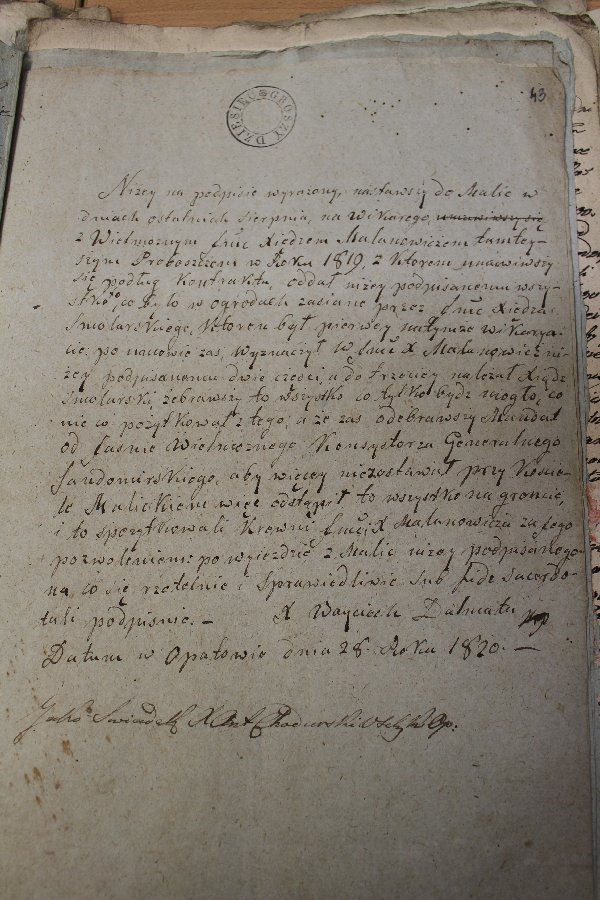 43
DZIESIĘĆ GROSZY
Niżey na podpisie wyrażony, nastawszy do Malic w
dniach ostatnich Sierpnia, na Wikarego, umówiwszy się
z Wielmożnym Jmc Xiędzem Malanowiczem tamtey-
szym Proboszczem w Roku 1819, z Którem umówiwszy
się podług Kontraktu, oddał niżey podpisanemu wszy-
stko, co było w ogrodach zasiane przez Jmc Xiędza
Smolarskiego, Którem był pierwey natymże wikarya-
cie: po umowie zas, wyznaczył W Jmc X Malanowicz ni-
żey podpisanemu dwie części, a do trzeciey należał Xiądz
Smolarski, zebrawszy to wszystko co tylko bydz mogło, co
nie co pożytkował z tego; a że zas odebrawszy Mandat
od Jaśnie Wielmożnego Konsystorza Generalnego
Sandomirskiego, aby więcey niezostawał przy Koscie-
le Malickiem więc odstąpił to wszystko na groncie
i to spożytkowali Krewni Jmci X Malanowicza za Jego
pozwoleniem: po wyjeździe z Malic niżey podpisanego
na co się rzetelnie i Sprawiedliwie sub fide sacerdo-
tali podpisuie. — X Woyciech Dalmata
Datum w Opatowie dnia 28 Roku 1820. —
Jako Swiadek X Ant Chodurski